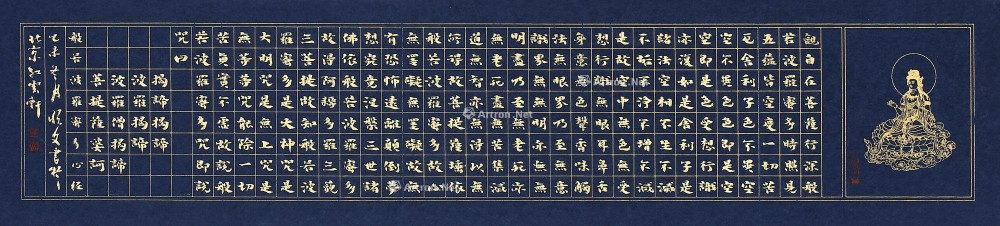 觀自在菩薩行深般
若波羅蜜多時照見
五蘊皆空度一切苦
厄舍利子色不異空
空不異色色即是空
空即是色受想行識
亦復如是舍利子是
諸法空相不生不滅
不垢不淨不增不減
是故空中無色無受
想行識無眼耳鼻舌
身意無色聲香味觸
法無眼界乃至無意
識界無無明亦無無
明盡乃至無老死亦
無老死盡無苦集滅
道無智亦無得以無
所得故菩提薩埵依
般若波羅蜜多故心
無罣礙無罣礙故無
有恐怖遠離顛倒夢
想究竟涅槃三世諸
佛依般若波羅蜜多
故得阿耨多羅三藐
三菩提故知般若波
羅蜜多是大神咒是
大明咒是無上咒是
無等等咒能除一切
苦真實不虛故說般
若波羅蜜多咒即說
咒曰
揭諦揭諦
波羅揭諦
波羅僧揭諦
菩提薩婆訶
般若波羅蜜多心經
乙未書於
北京紅雲軒
Artron.Net